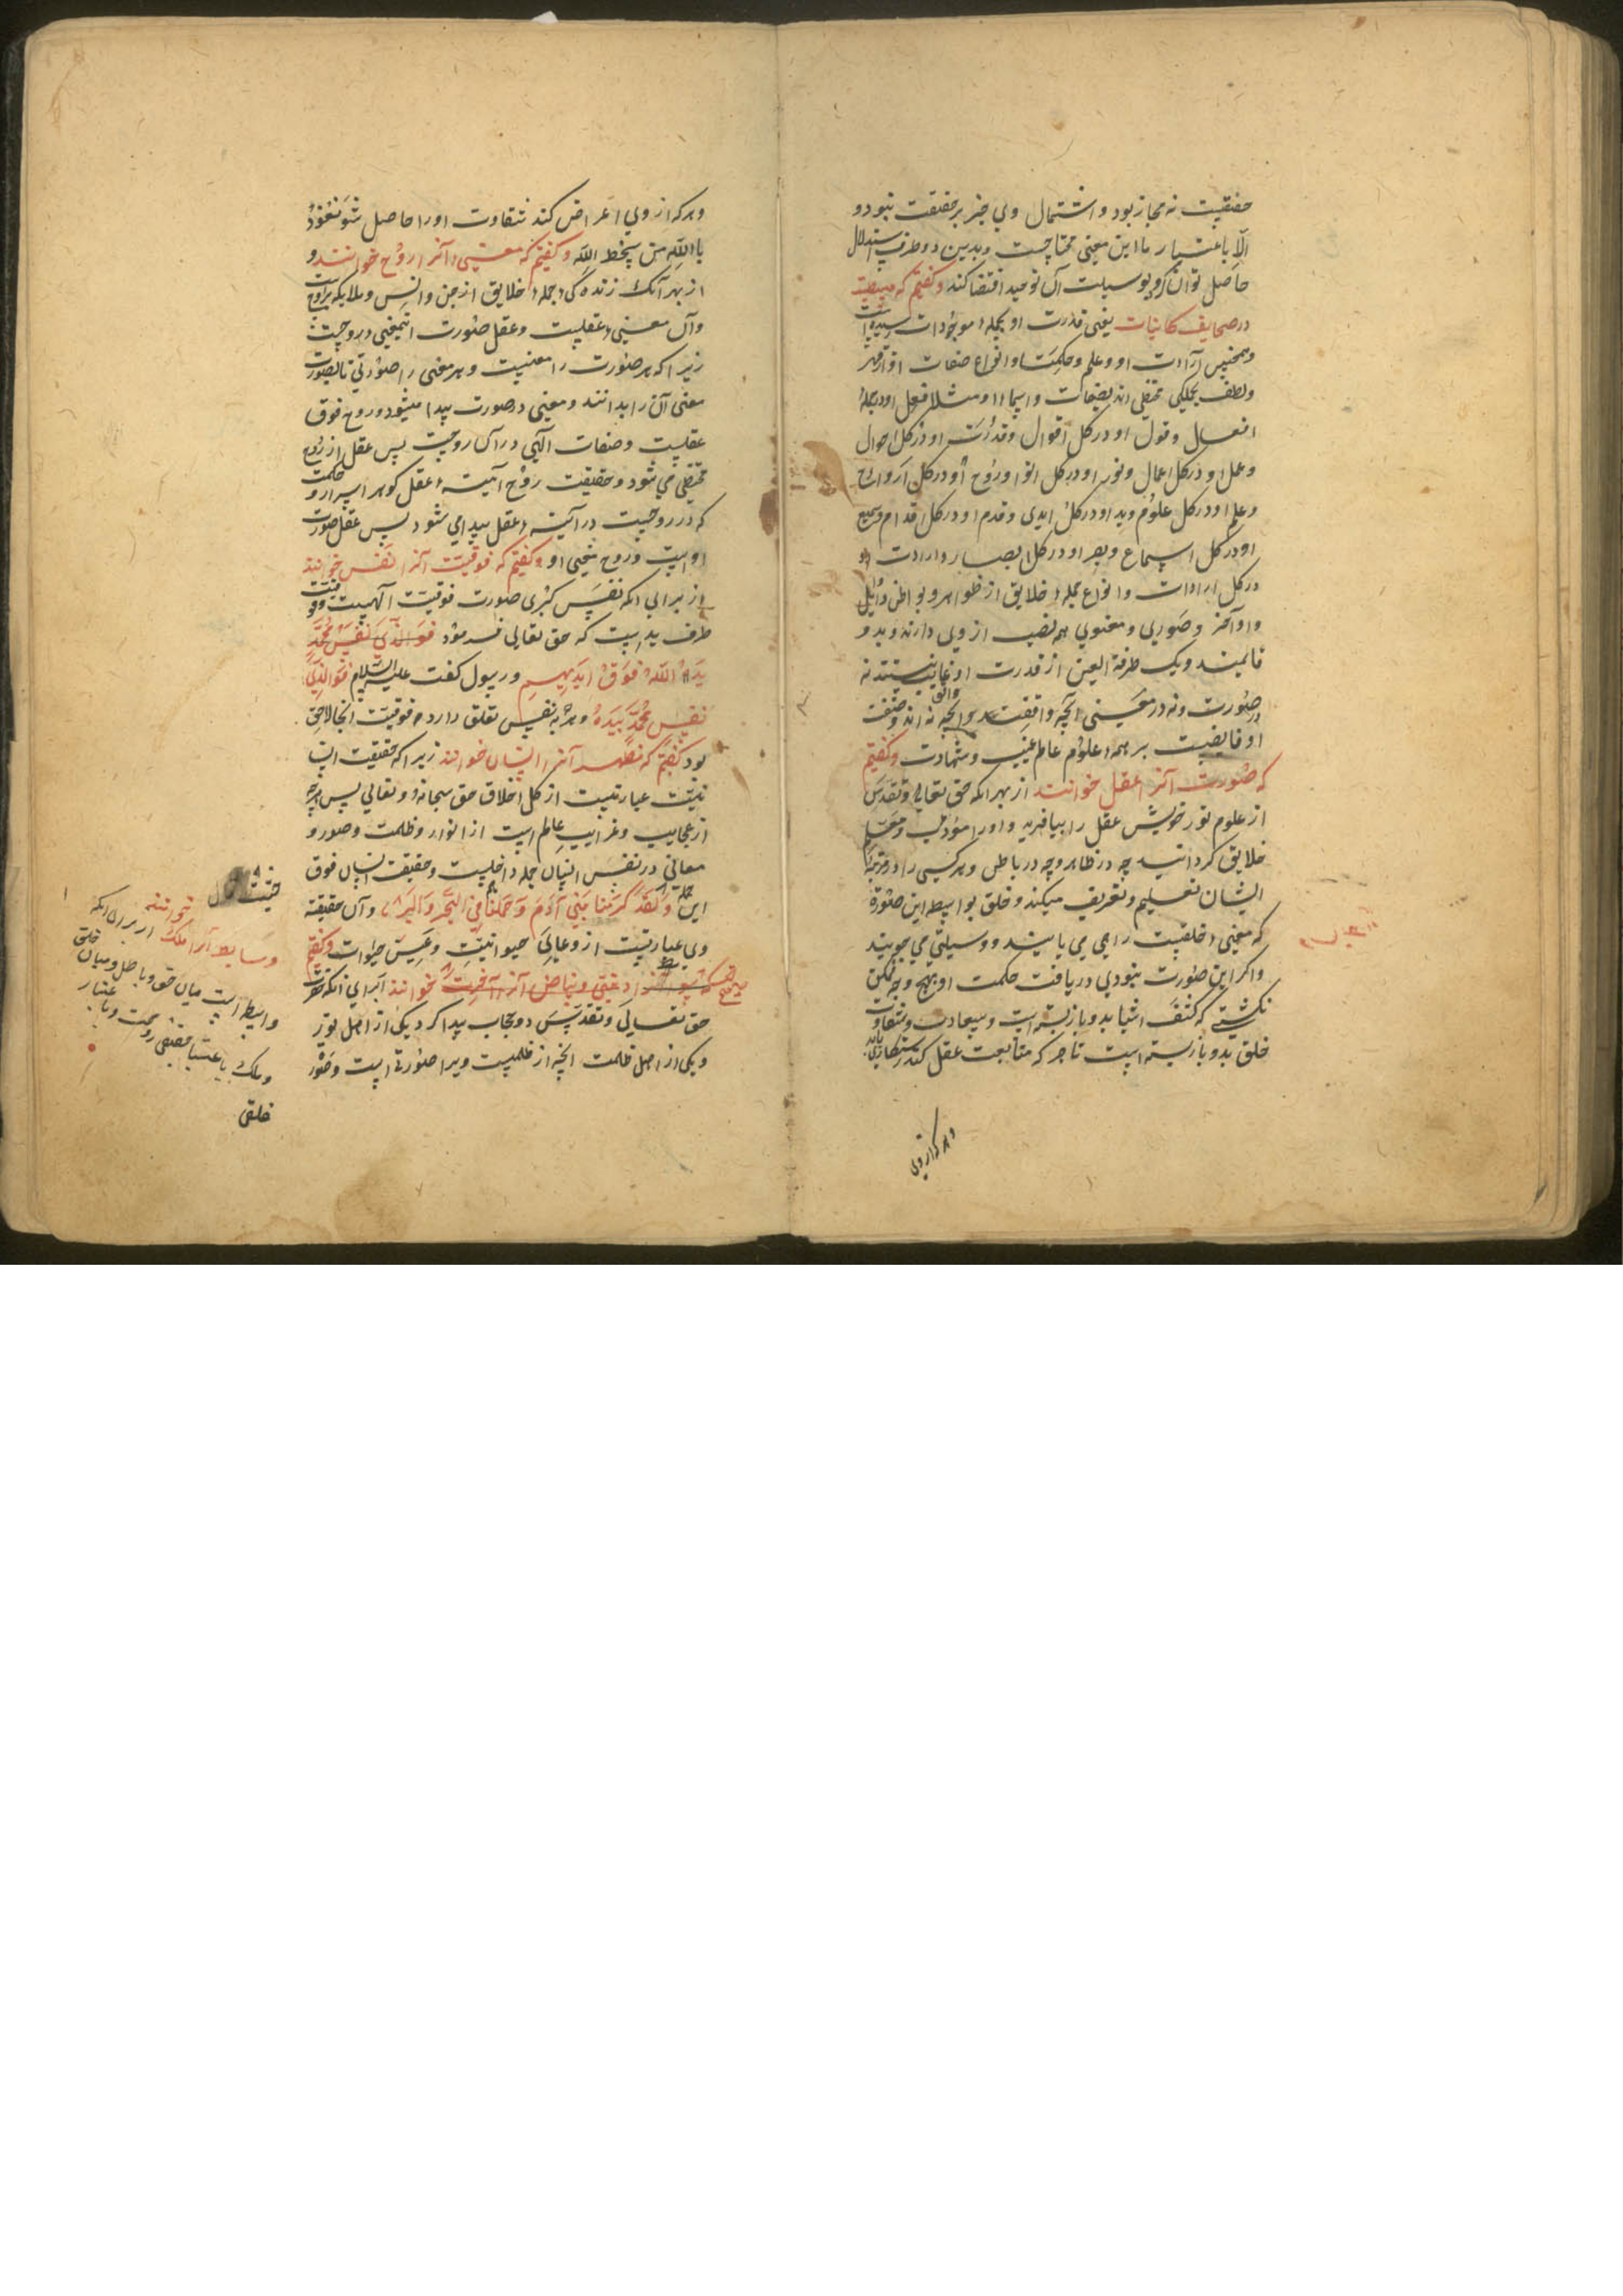 حقیقیت نه مجاز بود و اشتمال وی جز بر حقیقت نبود و
الّا باعتبار ما این معنی محتاجست و بدین دو طرف استدلال
حاصل توان کرد بوسیلت آن توحید اقتضا کند و کفتیم که
در صحایف کاینات یعنی قدرت او بجمله موجودات
و همچنین ارادت او و علم و حکمت و انواع صفات او از قهر
ولطف بجملکی اند بصفات واسما و مثلا فعل او در جمله
افعال وقول او در کل اقوال وقدرت او در کل احوال
وعمل او در کل اعمال ونور او در کل انوار وروح او در کل ارواح
وعلم او در کل علوم وید او در کل ایدی وقدم او در کل اقدام وسمع
او در کل اسماع وبصر او در کل ابصار وارادت او
در کل ارادات وانواع جمله خلایق از ظواهر وبواطن واوایل
واواخر وصوری ومعنوی همه نصیب از وی دارند وبدو
قایمند ویک طرفة العین از قدرت او غایب نیستند نه
در صورت ونه در معنی آنچه واقفند و آنچه واقف نه اند وصفت
او فایضست بر همه علوم عالم غیب وشهادت وکفتیم
که صورت آنرا عقل خوانند از بهر انکه حق تعالی وتقدس
از علوم نور خویش عقل را بیافرید واورا مؤدب ومعلم
خلایق کردانید چه در ظاهر وچه در باطن وهر کسی را در مرتبه
ایشان تعلیم وتعریف میکند وخلق بواسطه این صورة
که معنی خلقیت راهی می یابند ووسیلتی می جویند
واکر این صورت نبودی دریافت حکمت او بهیچ وجه ممکن
نکشتی که کشف اشیا بدو باز بسته است وسعادت وشقاوت
خلق بدو باز بسته است تا هر که متابعت عقل کند رستکاری یابد
وهر که از وی
وهر که از وی اعراض کند شقاوت اورا حاصل شود نعوذ
بالله من سخط الله وکفتیم که معنی آنرا روح خوانند و
از بهر آنک زنده کی جمله خلایق از جن وانس وملایکه بروح است
وآن معنی عقلیست وعقل صورت اینمعنی روحیست
زیرا که هر صورت را معنیست وهر معنی را صورتی تا بصورت
معنی آن را بدانند ومعنی در صورت پیدا میشود وروح فوق
عقلیست وصفات الهی در آن روحیست پس عقل از روح
می شود وحقیقت روح آینه عقل کوهر اسرار و حکمت
که در روحیست در آینه عقل پیدا می شود پس عقل صورت
اوست وروح معنی او وکفتیم که فوقیت آنرا نفس خوانند
از برای انکه نفس کبری صورت فوقیت الهیست وفوقیت
طرف ید است که حق تعالی فرمود فوالذی نفس محمد
ید الله فوق ایدیهم ورسول کفت علیه السلام فوالذی
نفس محمد بیده وهرچه بنفس تعلق دارد فوقیت انجا لاحق
بود کفتیم که مظهر آنرا انسان خوانند زیرا که حقیقت
عبارتیست از کل اخلاق حق سبحانه وتعالی پس هرچه
از عجایب وغرایب عالم است از انوار وظلمت وصور و
معانی در نفس انسان جمله داخلیست وحقیقت انسان فوق
این جمله ولقد کرمنا بنی آدم وحملناهم فی البحر والبر وآن حقیقة
وی عبارتیست از حیوانیت حیوات وکفتیم
خوانند از برای انکه حضرت
حق تعالی وتقدس دو حجاب پیدا کرد یکی از اصل نور
ویکی از اصل ظلمت انچه از ظلمیست ویرا صورتی است وصور
وسایط آنرا ملک خوانند از برای انکه
واسطه است میان حق وباطل ومیان خلق
وملک باعتبار حقیقی وباعتبار
خلقی